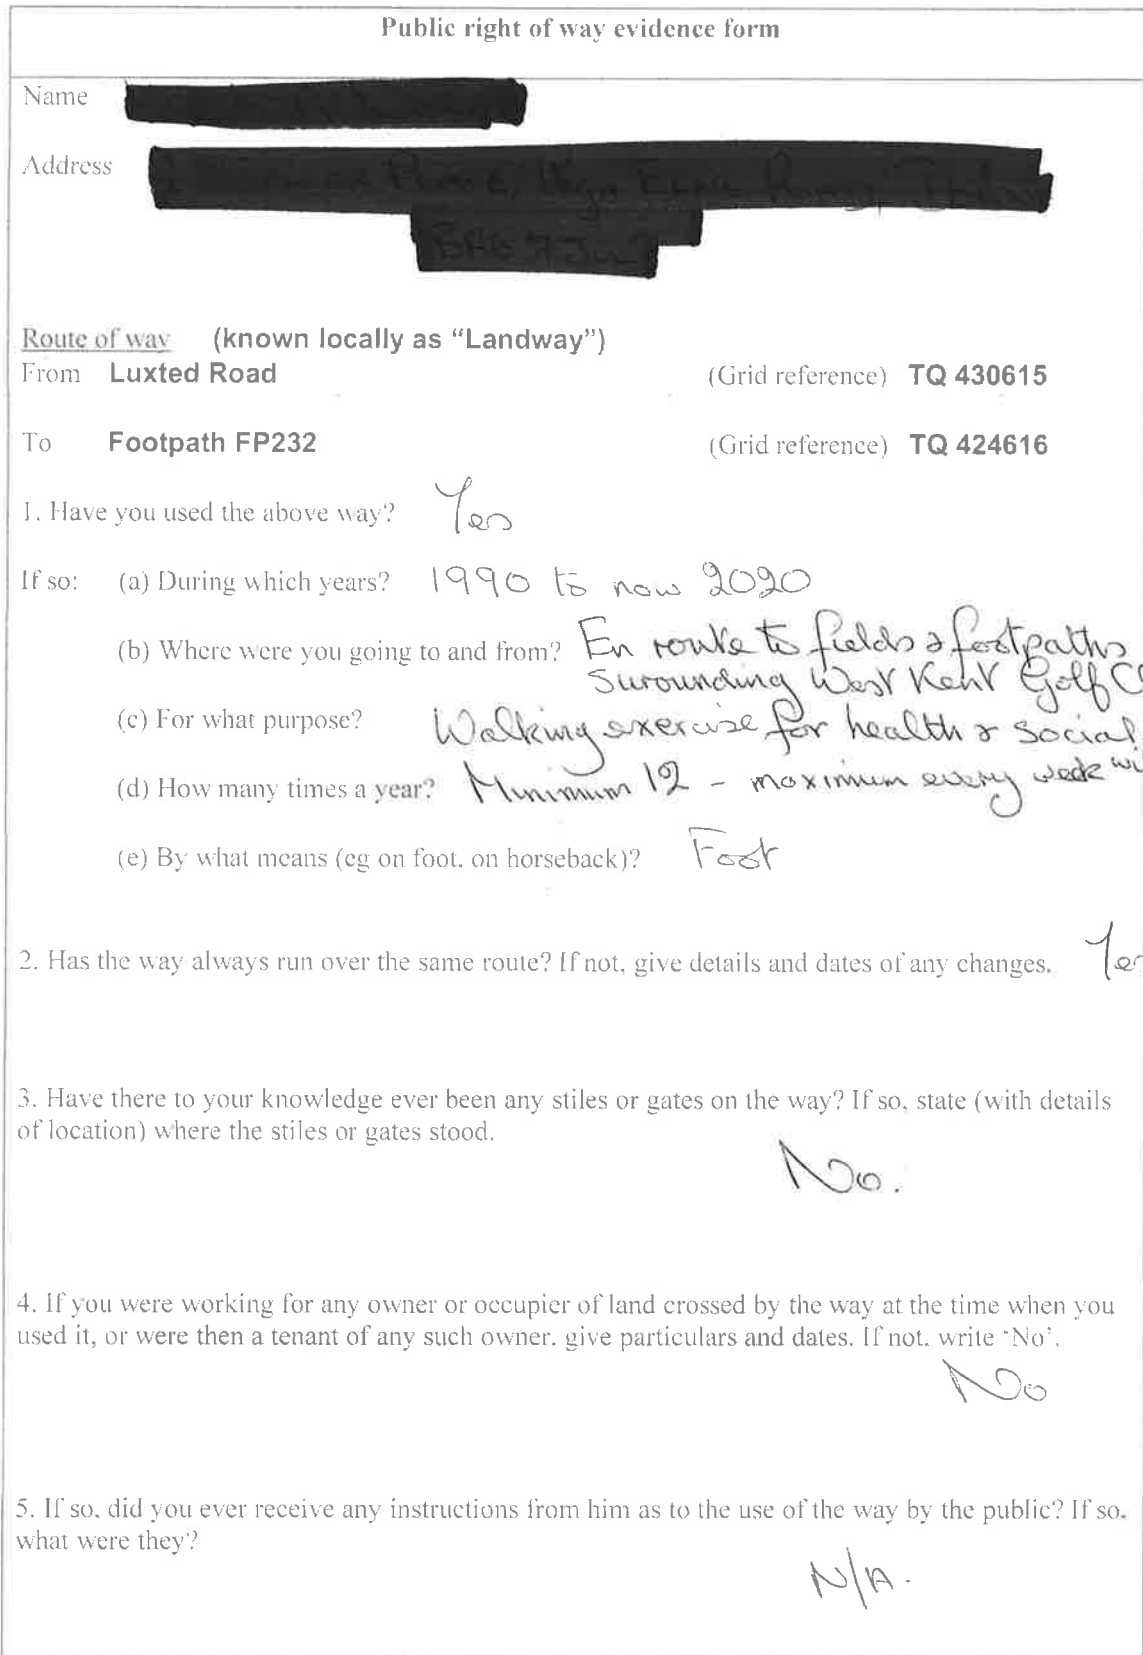 Public right of way evidence form
Name
Address
Route of way (known locally as “Landway”)
From Luxted Road (Grid reference) TQ 430615
To Footpath FP232 (Grid reference) TQ 424616
1. Have you used the above way? Yes
If so: (a) During which years? 1990 to now 2020
(b) Where were you going to and from? En route to fields & footpaths
Surounding West Kent Golf C
(c) For what purpose? Walking exercise for health & social
(d) How many times a year? Minimum 12 - maximum every week wi
(e) By what means (eg on foot, on horseback)? Foot
2. Has the way always run over the same route? If not, give details and dates of any changes. Yes
3. Have there to your knowledge ever been any stiles or gates on the way? If so, state (with details
of location) where the stiles or gates stood.
No.
4. If you were working for any owner or occupier of land crossed by the way at the time when you
used it, or were then a tenant of any such owner, give particulars and dates. If not, write ‘No’.
No
5. If so, did you ever receive any instructions from him as to the use of the way by the public? If so,
what were they?
N/A.